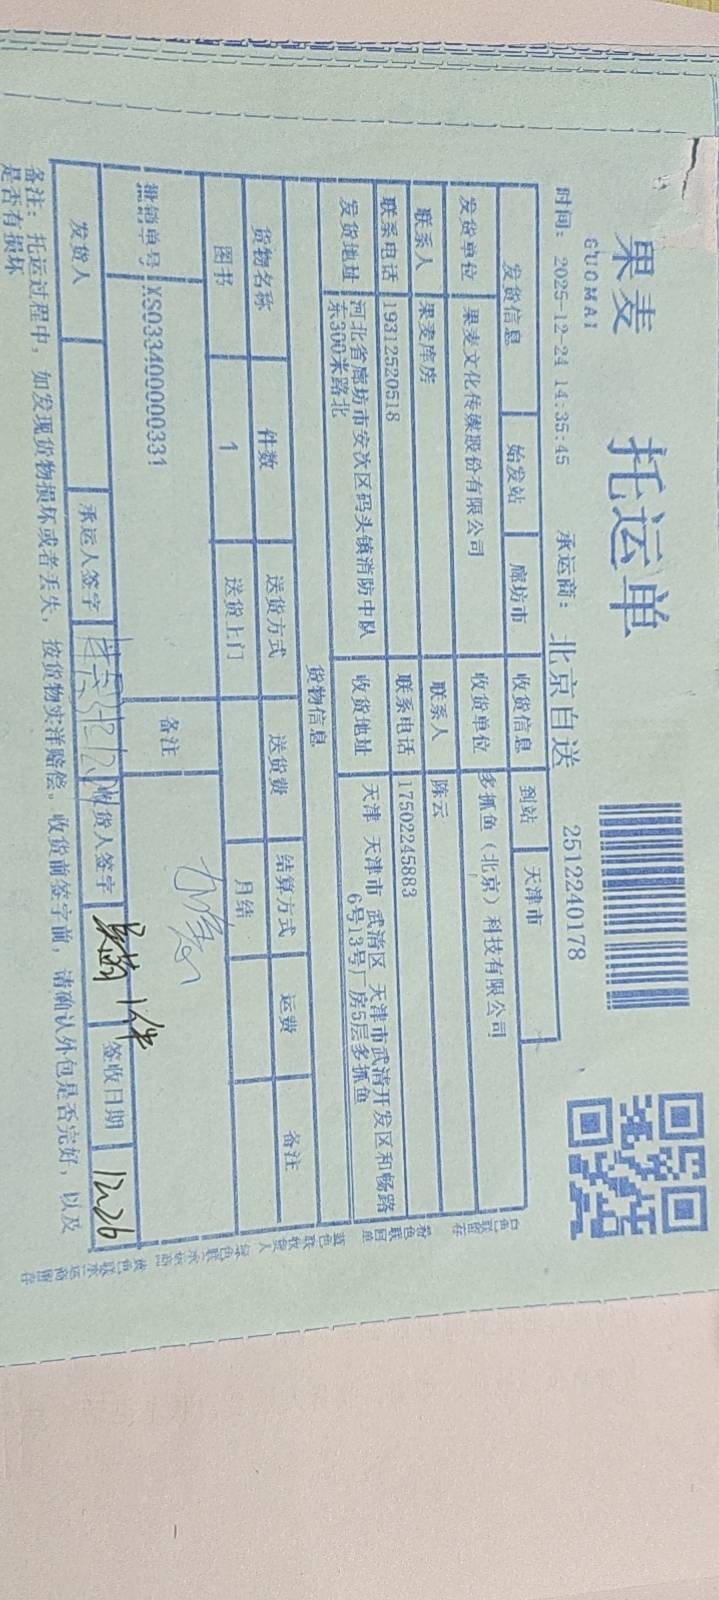 果麦 托运单
GUOMAI
时间: 2025-12-24 14:35:45 承运商: 北京自送 2512240178
发货信息 始发站 廊坊市 收货信息 到站 天津市
发货单位 果麦文化传媒股份有限公司 收货单位 多抓鱼（北京）科技有限公司
联系人 果麦库房 联系人 陈云
联系电话 19312520518 联系电话 17502245883
发货地址 河北省廊坊市安次区码头镇消防中队
东300米路北
收货地址 天津 天津市 武清区 天津市武清开发区和畅路
6号13号厂房5层多抓鱼
货物信息
货物名称 件数 送货方式 送货费 结算方式 运费 备注
图书 1 送货上门 月结
批销单号 XS03340000033​1 备注
发货人 承运人签字 收货人签字 1件 签收日期 12.26
备注: 托运过程中, 如发现货物损坏或者丢失, 按货物实洋赔偿。收货前签字前, 请确认外包是否完好, 以及
是否有损坏
白色联留存
粉色联回单
蓝色联收货人
绿色联承运商
黄色联承运商留存